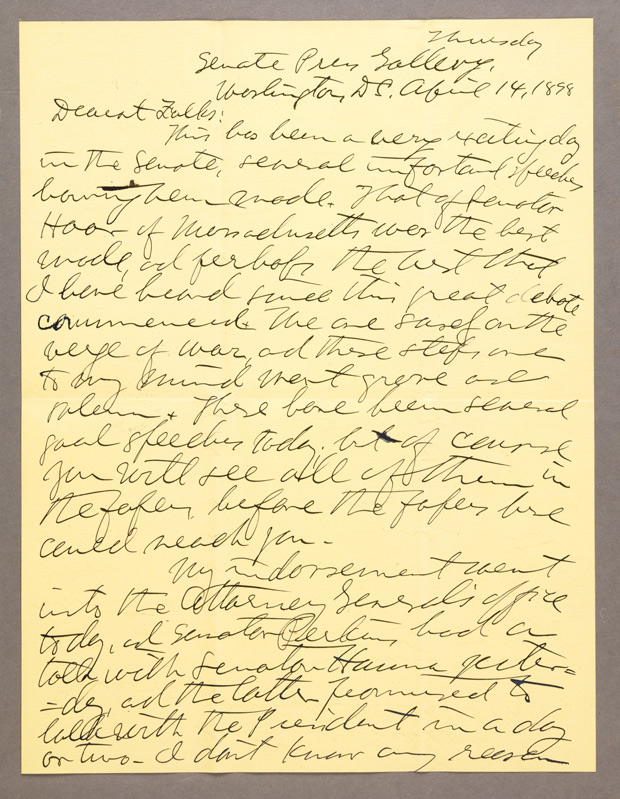 Thursday
Senate Press Gallery,
Washington, D.C. April 14, 1898
Dearest Folks:
This has been a very exciting day
in the Senate, several important speeches
having been made. That of Senator
Hoar of Massachusetts was the best
made, and perhaps the best that
I have heard since this great debate
commenced. We are surely on the
verge of war, and these steps are
to my mind most grave and
solemn. There have been several
good speeches today, but of course
you will see all of them in
the papers, before the papers here
could reach you -
My indorsement went
into the Attorney General's office
today, and Senator Perkins had a
talk with Senator Hanna yester-
-day, and the latter promised to
talk with the President in a day
or two - I don't know any reason